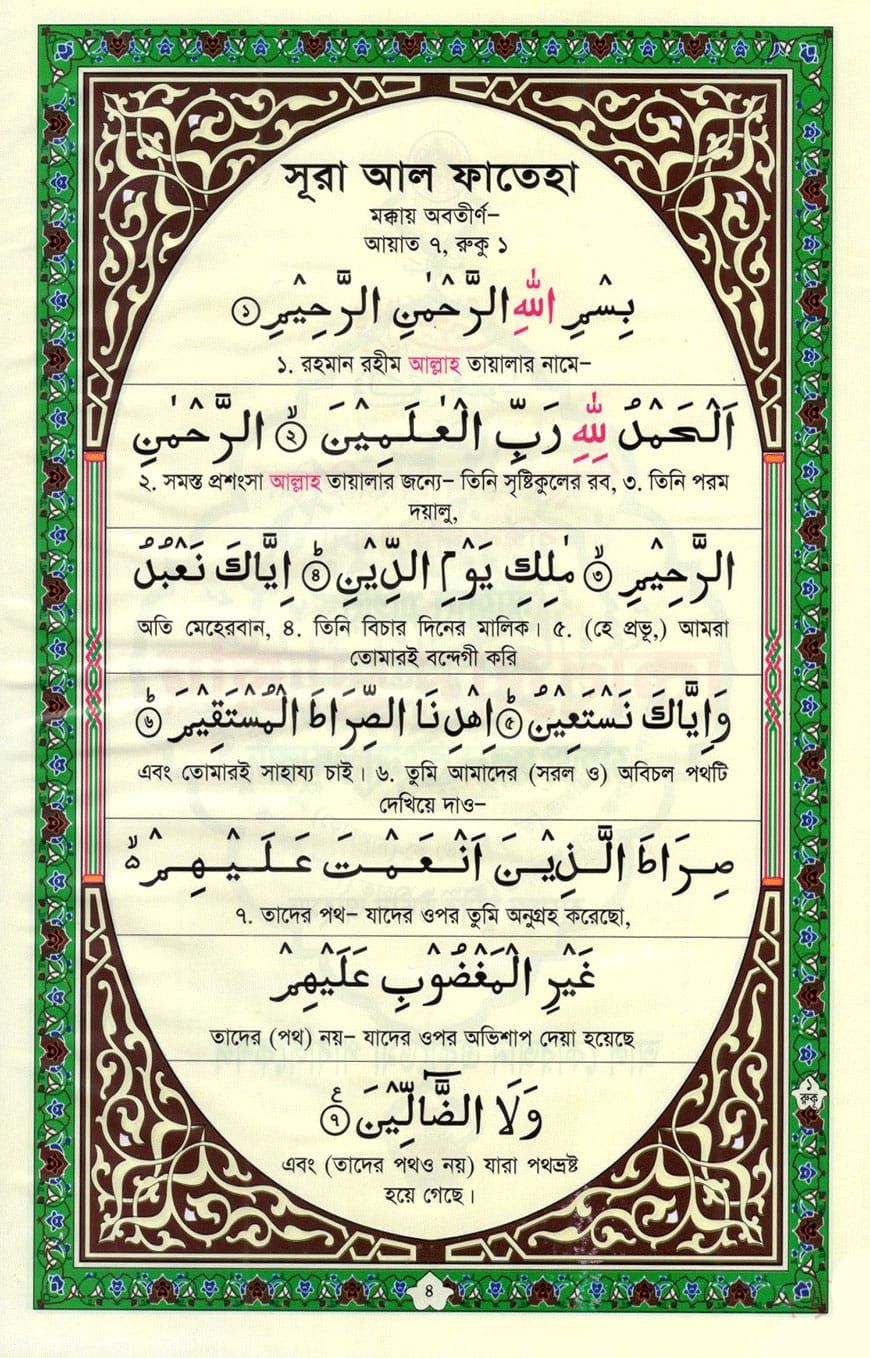 সূরা আল ফাতেহা
মক্কায় অবতীর্ণ–
আয়াত ৭, রুকু ১
بِسْمِ اللّٰهِ الرَّحْمٰنِ الرَّحِيْمِ ①
১. রহমান রহীম আল্লাহ তায়ালার নামে–
اَلْحَمْدُ لِلّٰهِ رَبِّ الْعٰلَمِيْنَ ۙ② الرَّحْمٰنِ
২. সমস্ত প্রশংসা আল্লাহ তায়ালার জন্যে– তিনি সৃষ্টিকুলের রব, ৩. তিনি পরম
দয়ালু,
الرَّحِيْمِ ۙ③ مٰلِكِ يَوْمِ الدِّيْنِ ؕ④ اِيَّاكَ نَعْبُدُ
অতি মেহেরবান, ৪. তিনি বিচার দিনের মালিক। ৫. (হে প্রভূ,) আমরা
তোমারই বন্দেগী করি
وَاِيَّاكَ نَسْتَعِيْنُ ؕ⑤ اِهْدِنَا الصِّرَاطَ الْمُسْتَقِيْمَ ؕ⑥
এবং তোমারই সাহায্য চাই। ৬. তুমি আমাদের (সরল ও) অবিচল পথটি
দেখিয়ে দাও–
صِرَاطَ الَّذِيْنَ اَنْعَمْتَ عَلَيْهِمْ ۙ
৭. তাদের পথ– যাদের ওপর তুমি অনুগ্রহ করেছো,
غَيْرِ الْمَغْضُوْبِ عَلَيْهِمْ
তাদের (পথ) নয়– যাদের ওপর অভিশাপ দেয়া হয়েছে
وَلَا الضَّآلِّيْنَ ⑦ ع
এবং (তাদের পথও নয়) যারা পথভ্রষ্ট
হয়ে গেছে।
১
রুকু
৪